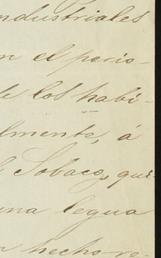 ndustriales
n el perio-
de los habi-
lmente, á
l Tobaco, qui
una legua
n hecho re-